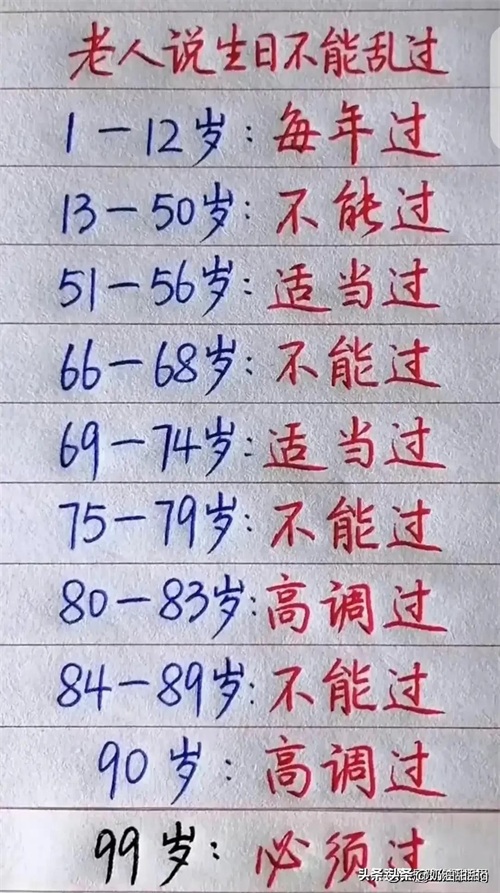 老人说生日不能乱过
1－12岁：每年过
13－50岁：不能过
51－56岁：适当过
66－68岁：不能过
69－74岁：适当过
75－79岁：不能过
80－83岁：高调过
84－89岁：不能过
90岁：高调过
99岁：必须过